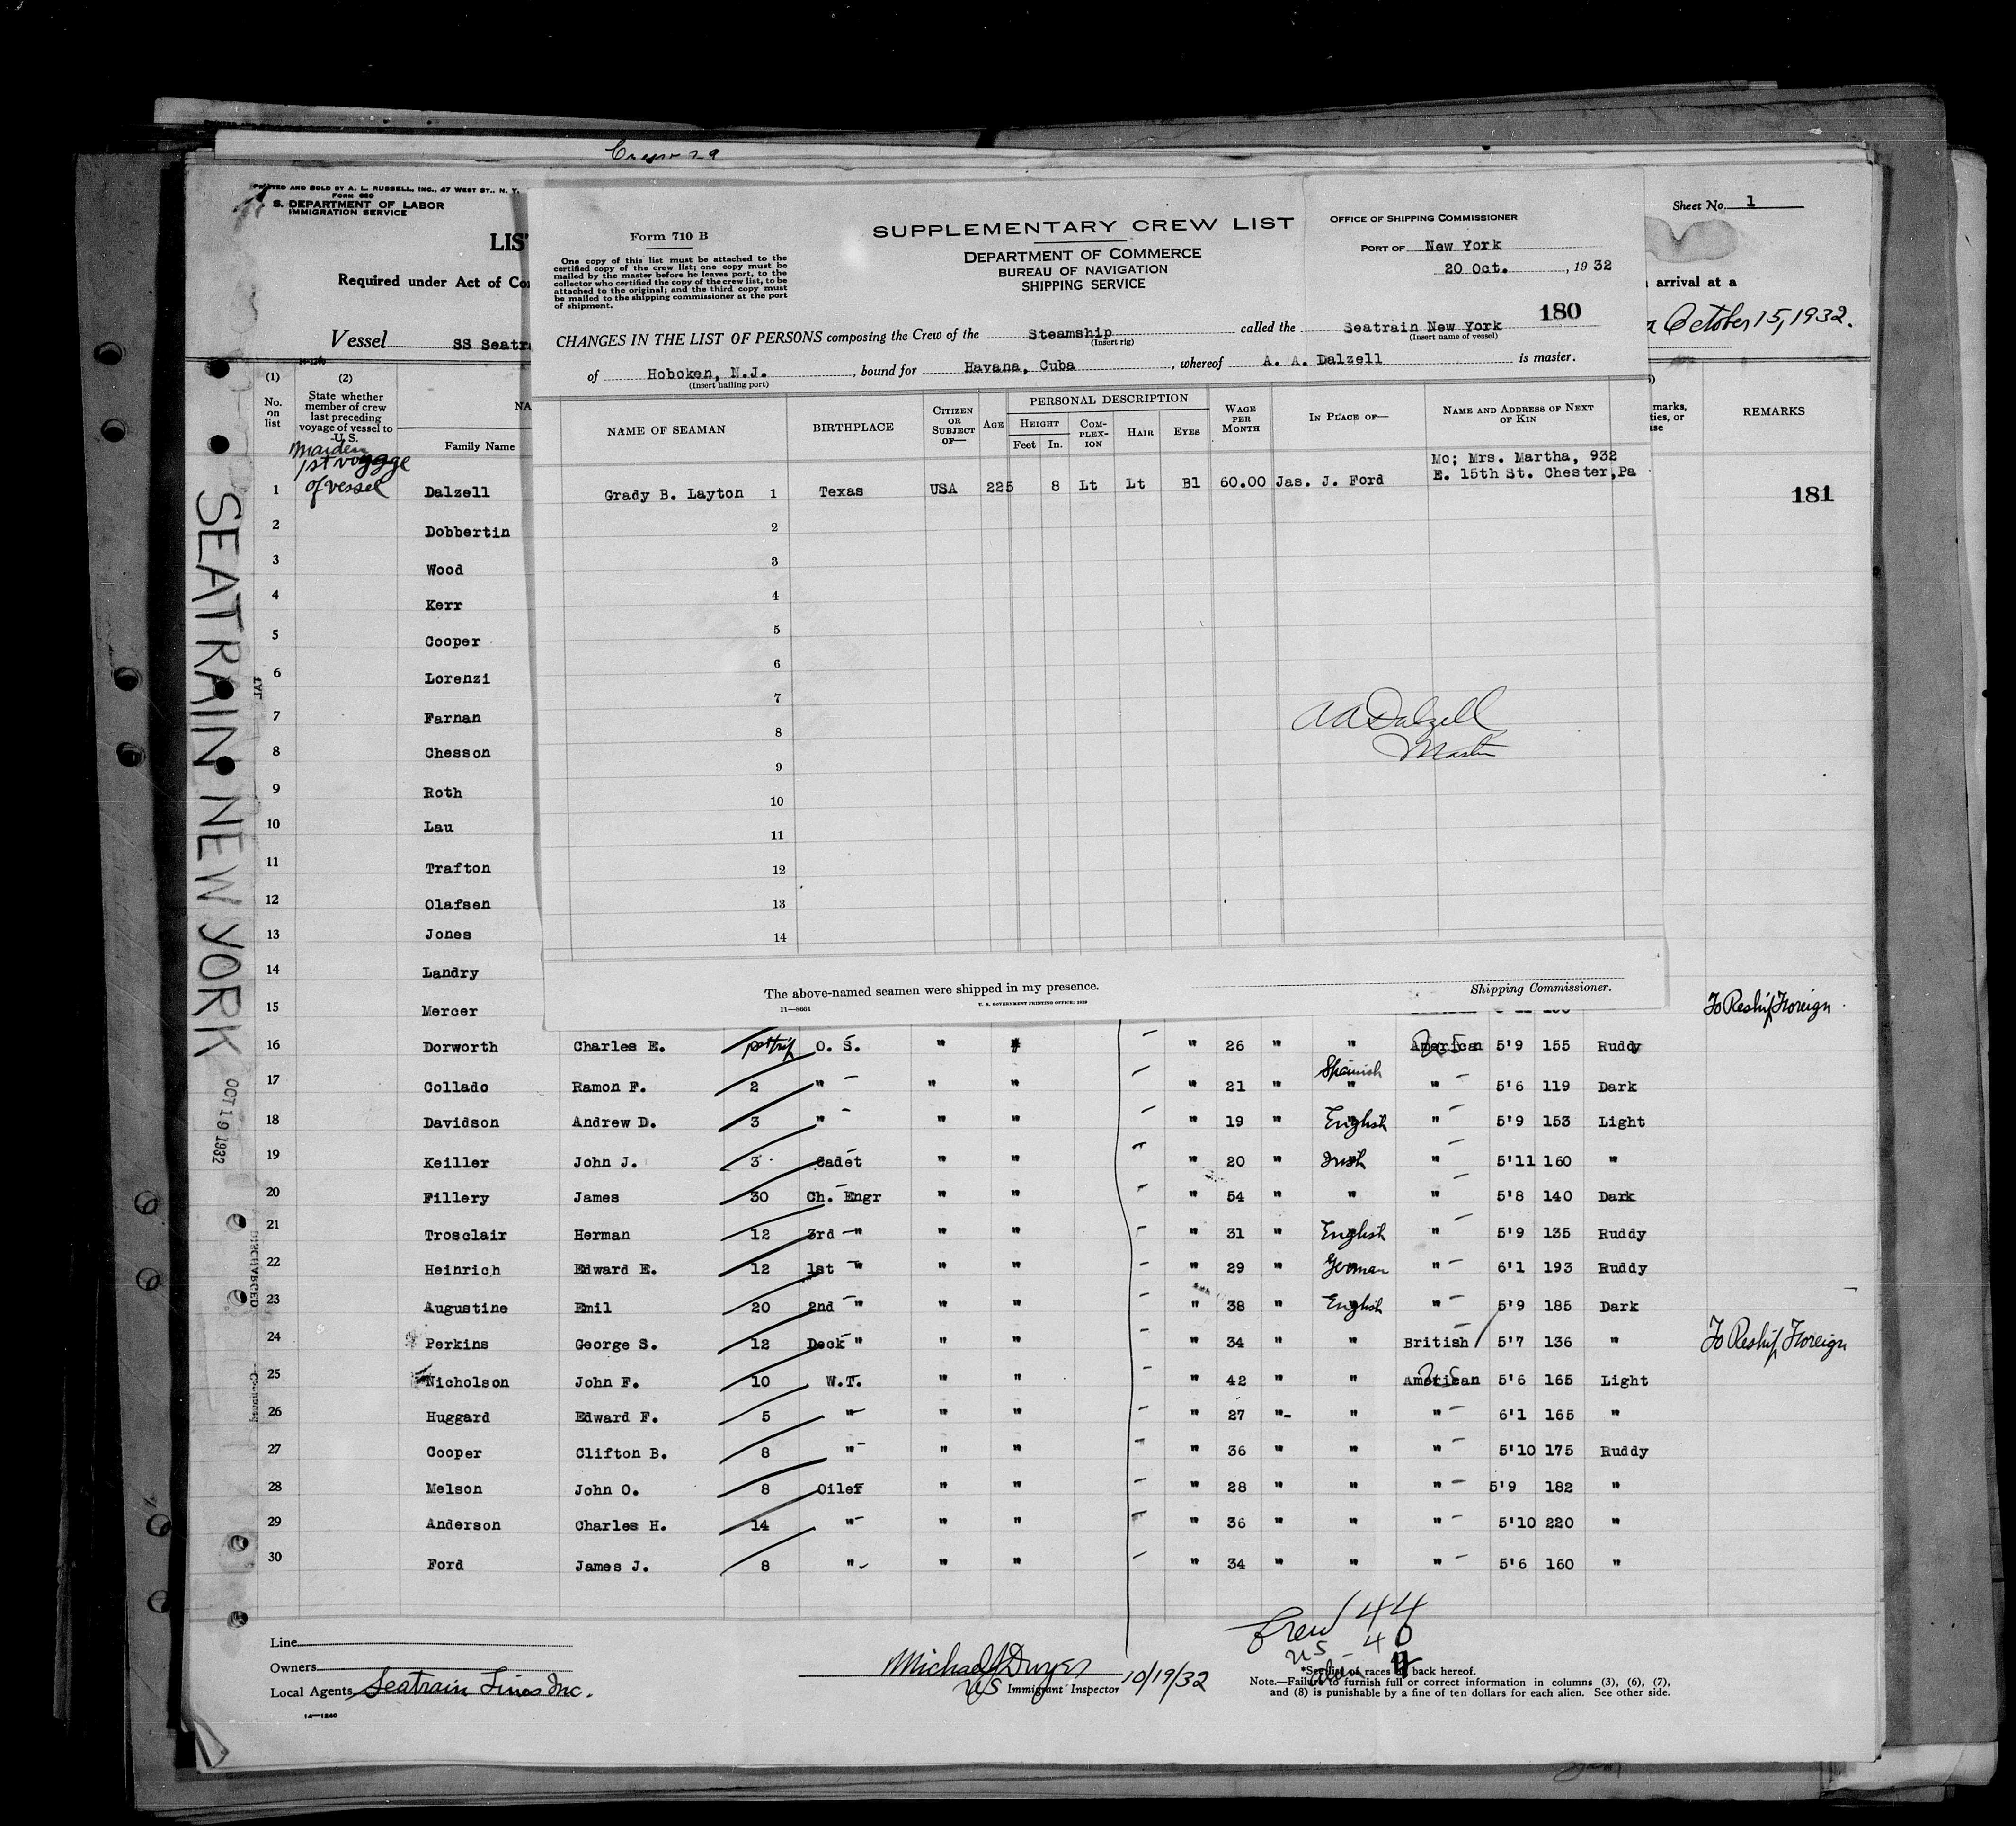 Crew 29
PRINTED AND SOLD BY A. L. RUSSELL, INC., 47 WEST ST., N. Y.
FORM 680
S. DEPARTMENT OF LABOR
IMMIGRATION SERVICE
LIS
Required under Act of Co
Vessel SS Seatr
Sheet No. 1
arrival at a
October 15, 1932.
Form 710 B
One copy of this list must be attached to the
certified copy of the crew list; one copy must be
mailed by the master before he leaves port, to the
collector who certified the copy of the crew list, to be
attached to the original; and the third copy must
be mailed to the shipping commissioner at the port
of shipment.
SUPPLEMENTARY CREW LIST
DEPARTMENT OF COMMERCE
BUREAU OF NAVIGATION
SHIPPING SERVICE
OFFICE OF SHIPPING COMMISSIONER
PORT OF New York
20 Oct. , 1932
180
CHANGES IN THE LIST OF PERSONS composing the Crew of the Steamship called the Seatrain New York
(Insert rig) (Insert name of vessel)
of Hoboken, N.J. , bound for Havana, Cuba , whereof A. A. Dalzell is master.
(Insert hailing port)
NAME OF SEAMAN BIRTHPLACE CITIZEN OR SUBJECT OF— AGE PERSONAL DESCRIPTION HEIGHT Feet In. COM-PLEX-ION HAIR EYES WAGE PER MONTH IN PLACE OF— NAME AND ADDRESS OF NEXT OF KIN
Mo; Mrs. Martha, 932
Grady B. Layton 1 Texas USA 225 8 Lt Lt Bl 60.00 Jas. J. Ford E. 15th St. Chester,Pa
2
3
4
5
6
7
8
9
10
11
12
13
14
AADalzell
Master
The above-named seamen were shipped in my presence.
Shipping Commissioner.
11—8661
U. S. GOVERNMENT PRINTING OFFICE: 1929
14-1240
(1) (2)
No. on list
State whether member of crew last preceding voyage of vessel to U.S.
NA
Family Name
marks,
ties, or
REMARKS
181
Maiden
1st voyage
of vessel
1 Dalzell
2 Dobbertin
3 Wood
4 Kerr
5 Cooper
6 Lorenzi
7 Farnan
8 Chesson
9 Roth
10 Lau
11 Trafton
12 Olafsen
13 Jones
14 Landry
15 Mercer To Reship Foreign
16 Dorworth Charles E. 1st trip O. S. " " " 26 " " American 5'9 155 Ruddy
17 Collado Ramon F. 2 " " " " 21 " Spanish " " 5'6 119 Dark
18 Davidson Andrew D. 3 " " " " 19 " English " 5'9 153 Light
19 Keiller John J. 3 Cadet " " " 20 " Irish " 5'11 160 "
20 Fillery James 30 Ch. Engr " " " 54 " " " 5'8 140 Dark
21 Trosclair Herman 12 3rd " " " " 31 " English " 5'9 135 Ruddy
22 Heinrich Edward E. 12 1st " " " " 29 " German " 6'1 193 Ruddy
23 Augustine Emil 20 2nd " " " " 38 " English " 5'9 185 Dark
24 Perkins George S. 12 Deck " " " " 34 " " British 5'7 136 " To Reship Foreign
25 Nicholson John F. 10 W.T. " " " 42 " " American 5'6 165 Light
26 Huggard Edward F. 5 " " " " 27 " " " 6'1 165 "
27 Cooper Clifton B. 8 " " " " 36 " " " 5'10 175 Ruddy
28 Melson John O. 8 Oiler " " " 28 " " " 5'9 182 "
29 Anderson Charles H. 14 " " " " 36 " " " 5'10 220 "
30 Ford James J. 8 " " " " 34 " " " 5'6 160 "
SEATRAIN NEW YORK
OCT 19 1932
DISCHARGED
Line
Owners
Local Agents Seatrain Lines Inc.
14—1240
Michael J Dwyer
US Immigrant Inspector 10/19/32
Crew 44
US 40
alien
*See list of races on back hereof.
Note.—Failure to furnish full or correct information in columns (3), (6), (7),
and (8) is punishable by a fine of ten dollars for each alien. See other side.